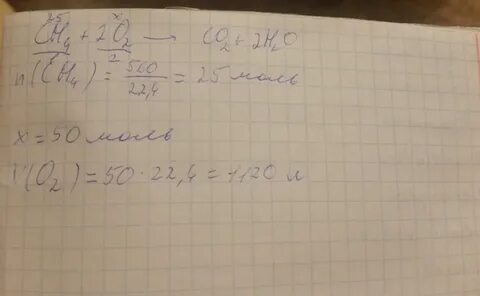 25 x
CH₄ + 2O₂ → CO₂ + 2H₂O
1 2
n(CH₄) = 560/22,4 = 25 моль
x = 50 моль
V(O₂) = 50 · 22,4 = 1120 л